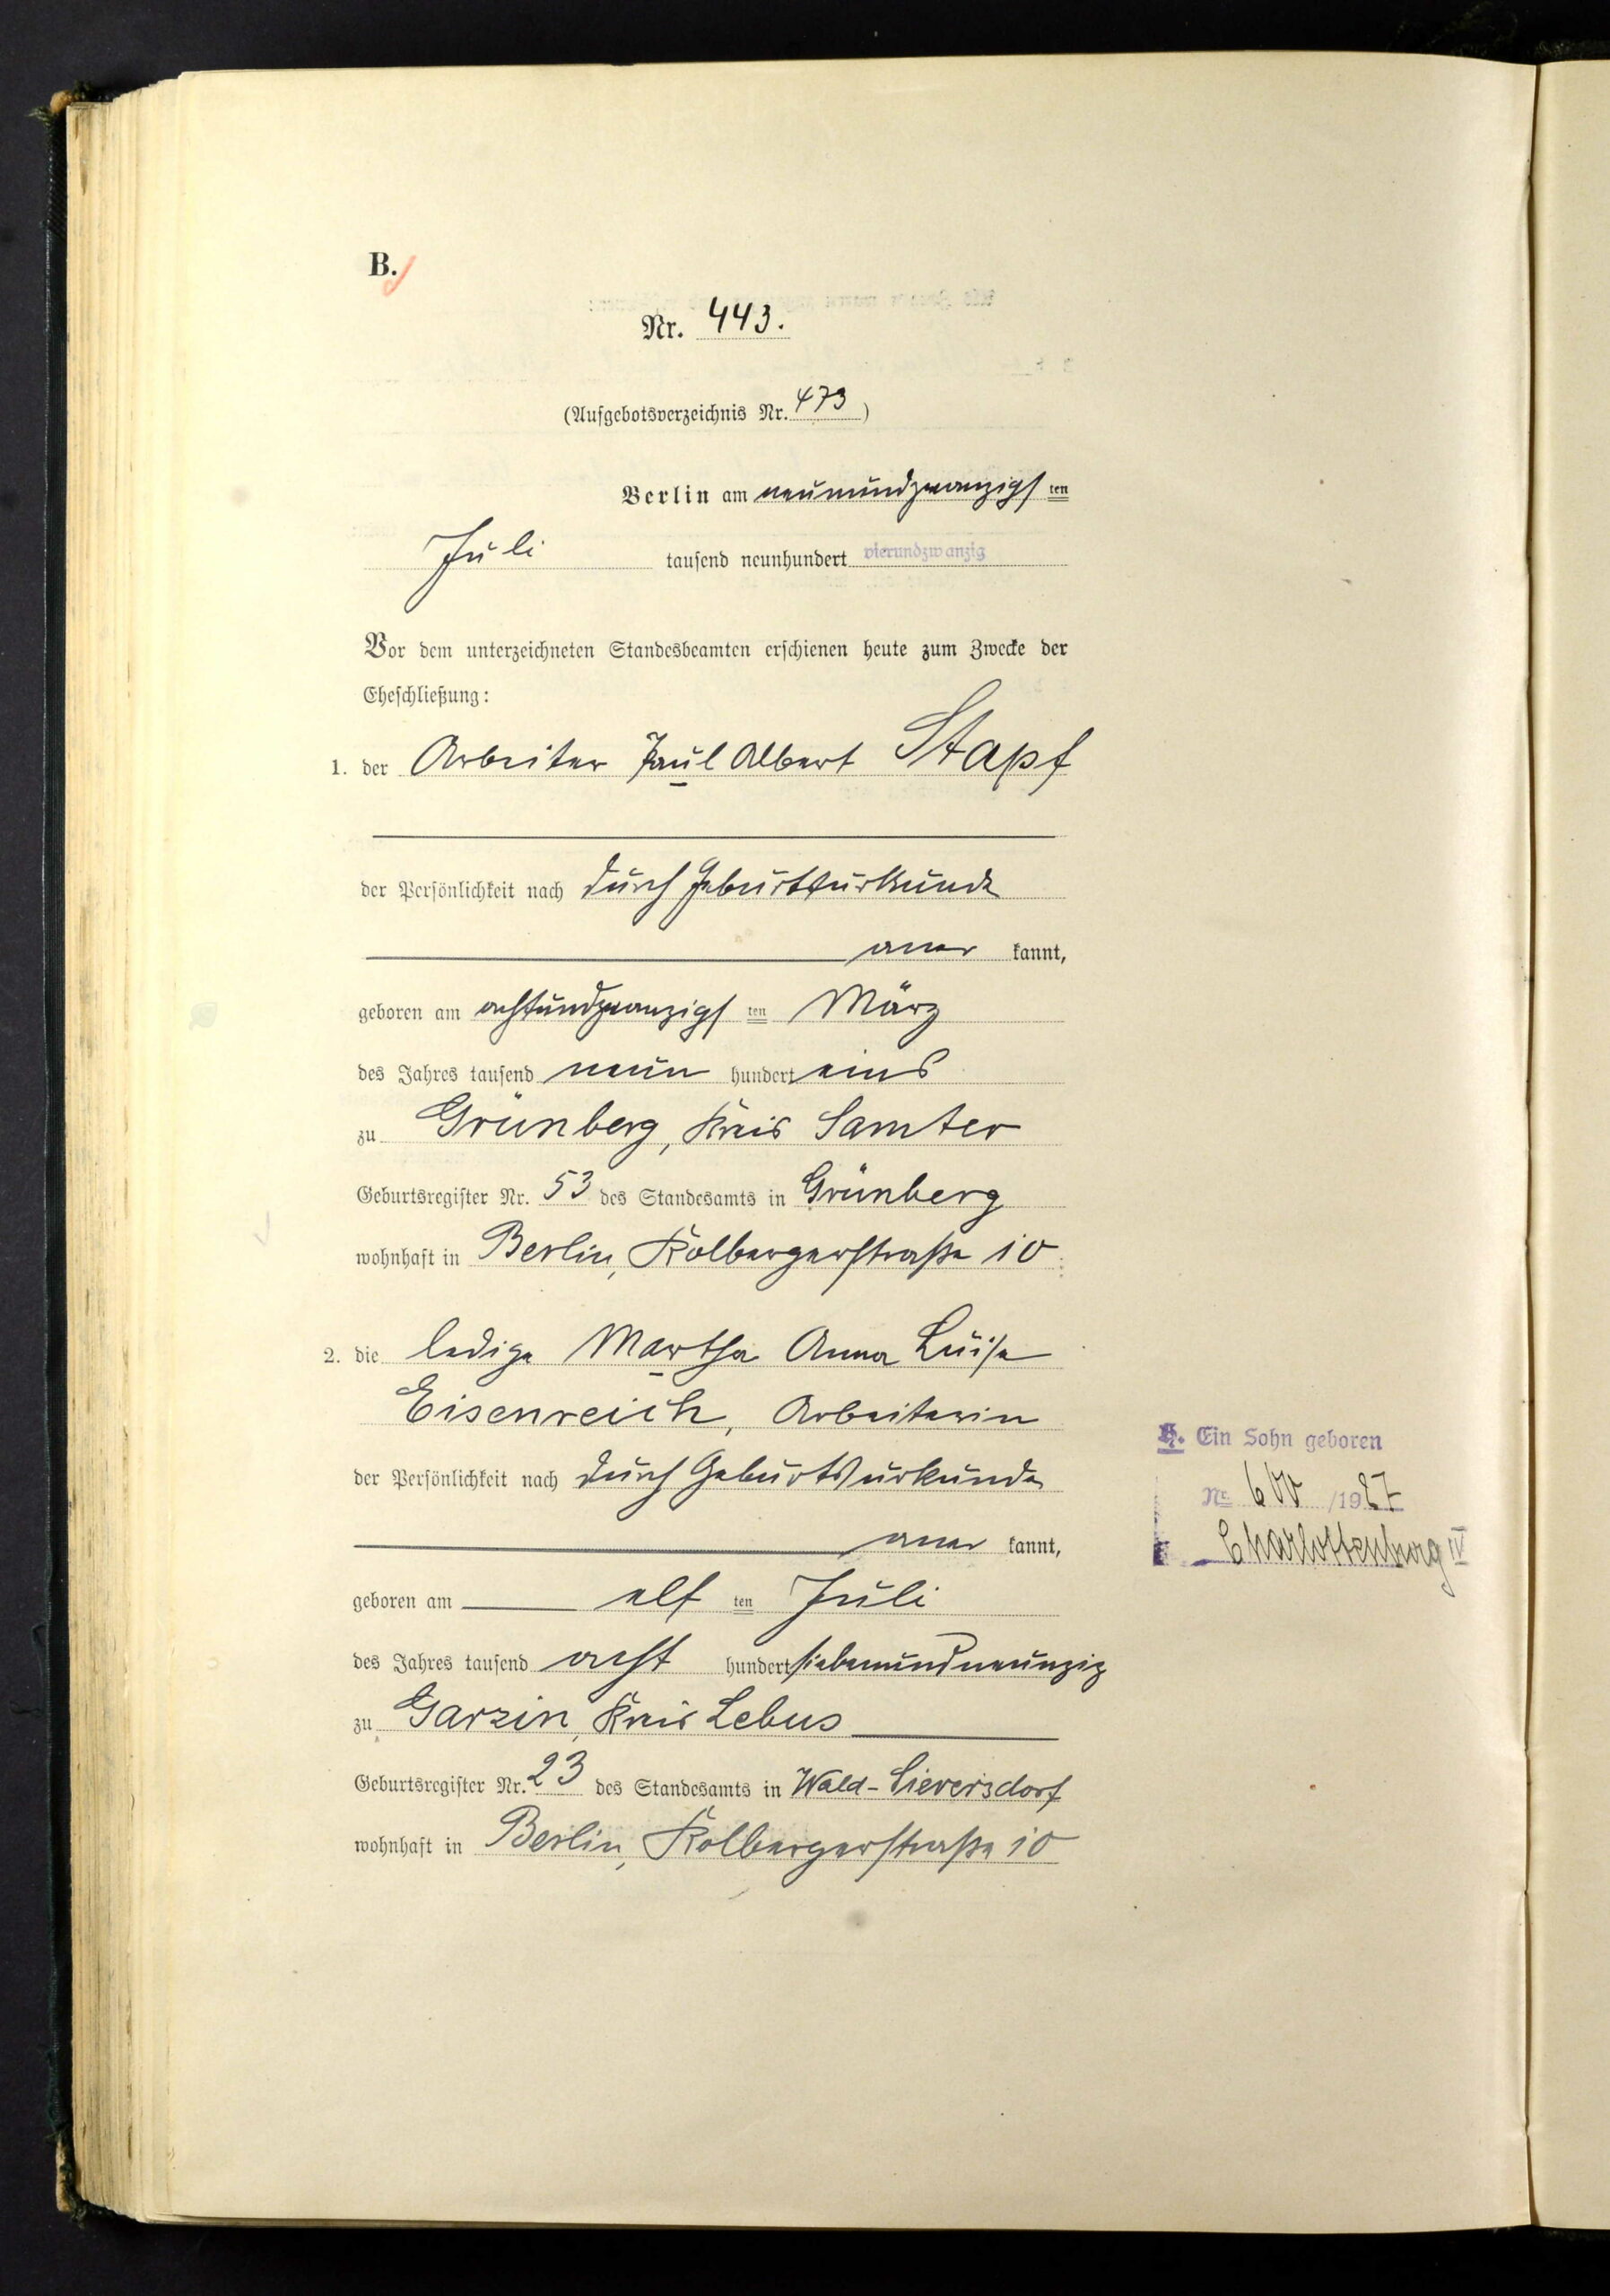 B.
Nr. 443.
(Aufgebotsverzeichnis Nr. 473)
Berlin am neunundzwanzigsten
Juli tausend neunhundert vierundzwanzig
Vor dem unterzeichneten Standesbeamten erschienen heute zum Zwecke der
Eheschließung:
1. der Arbeiter Paul Albert Stapf
der Persönlichkeit nach durch Geburtsurkunde
aner kannt,
geboren am achtundzwanzigsten März
des Jahres tausend neun hundert eins
zu Grünberg, Kreis Samter
Geburtsregister Nr. 53 des Standesamts in Grünberg
wohnhaft in Berlin, Kolbergerstraße 10
2. die ledige Martha Anna Luise
Eisenreich, Arbeiterin
der Persönlichkeit nach durch Geburtsurkunde
aner kannt,
geboren am elf ten Juli
des Jahres tausend acht hundert siebenundneunzig
zu Garzin, Kreis Lebus
Geburtsregister Nr. 23 des Standesamts in Wald-Sieversdorf
wohnhaft in Berlin, Kolbergerstraße 10
Ein Sohn geboren
Nr. 600 /1927
Charlottenburg IV